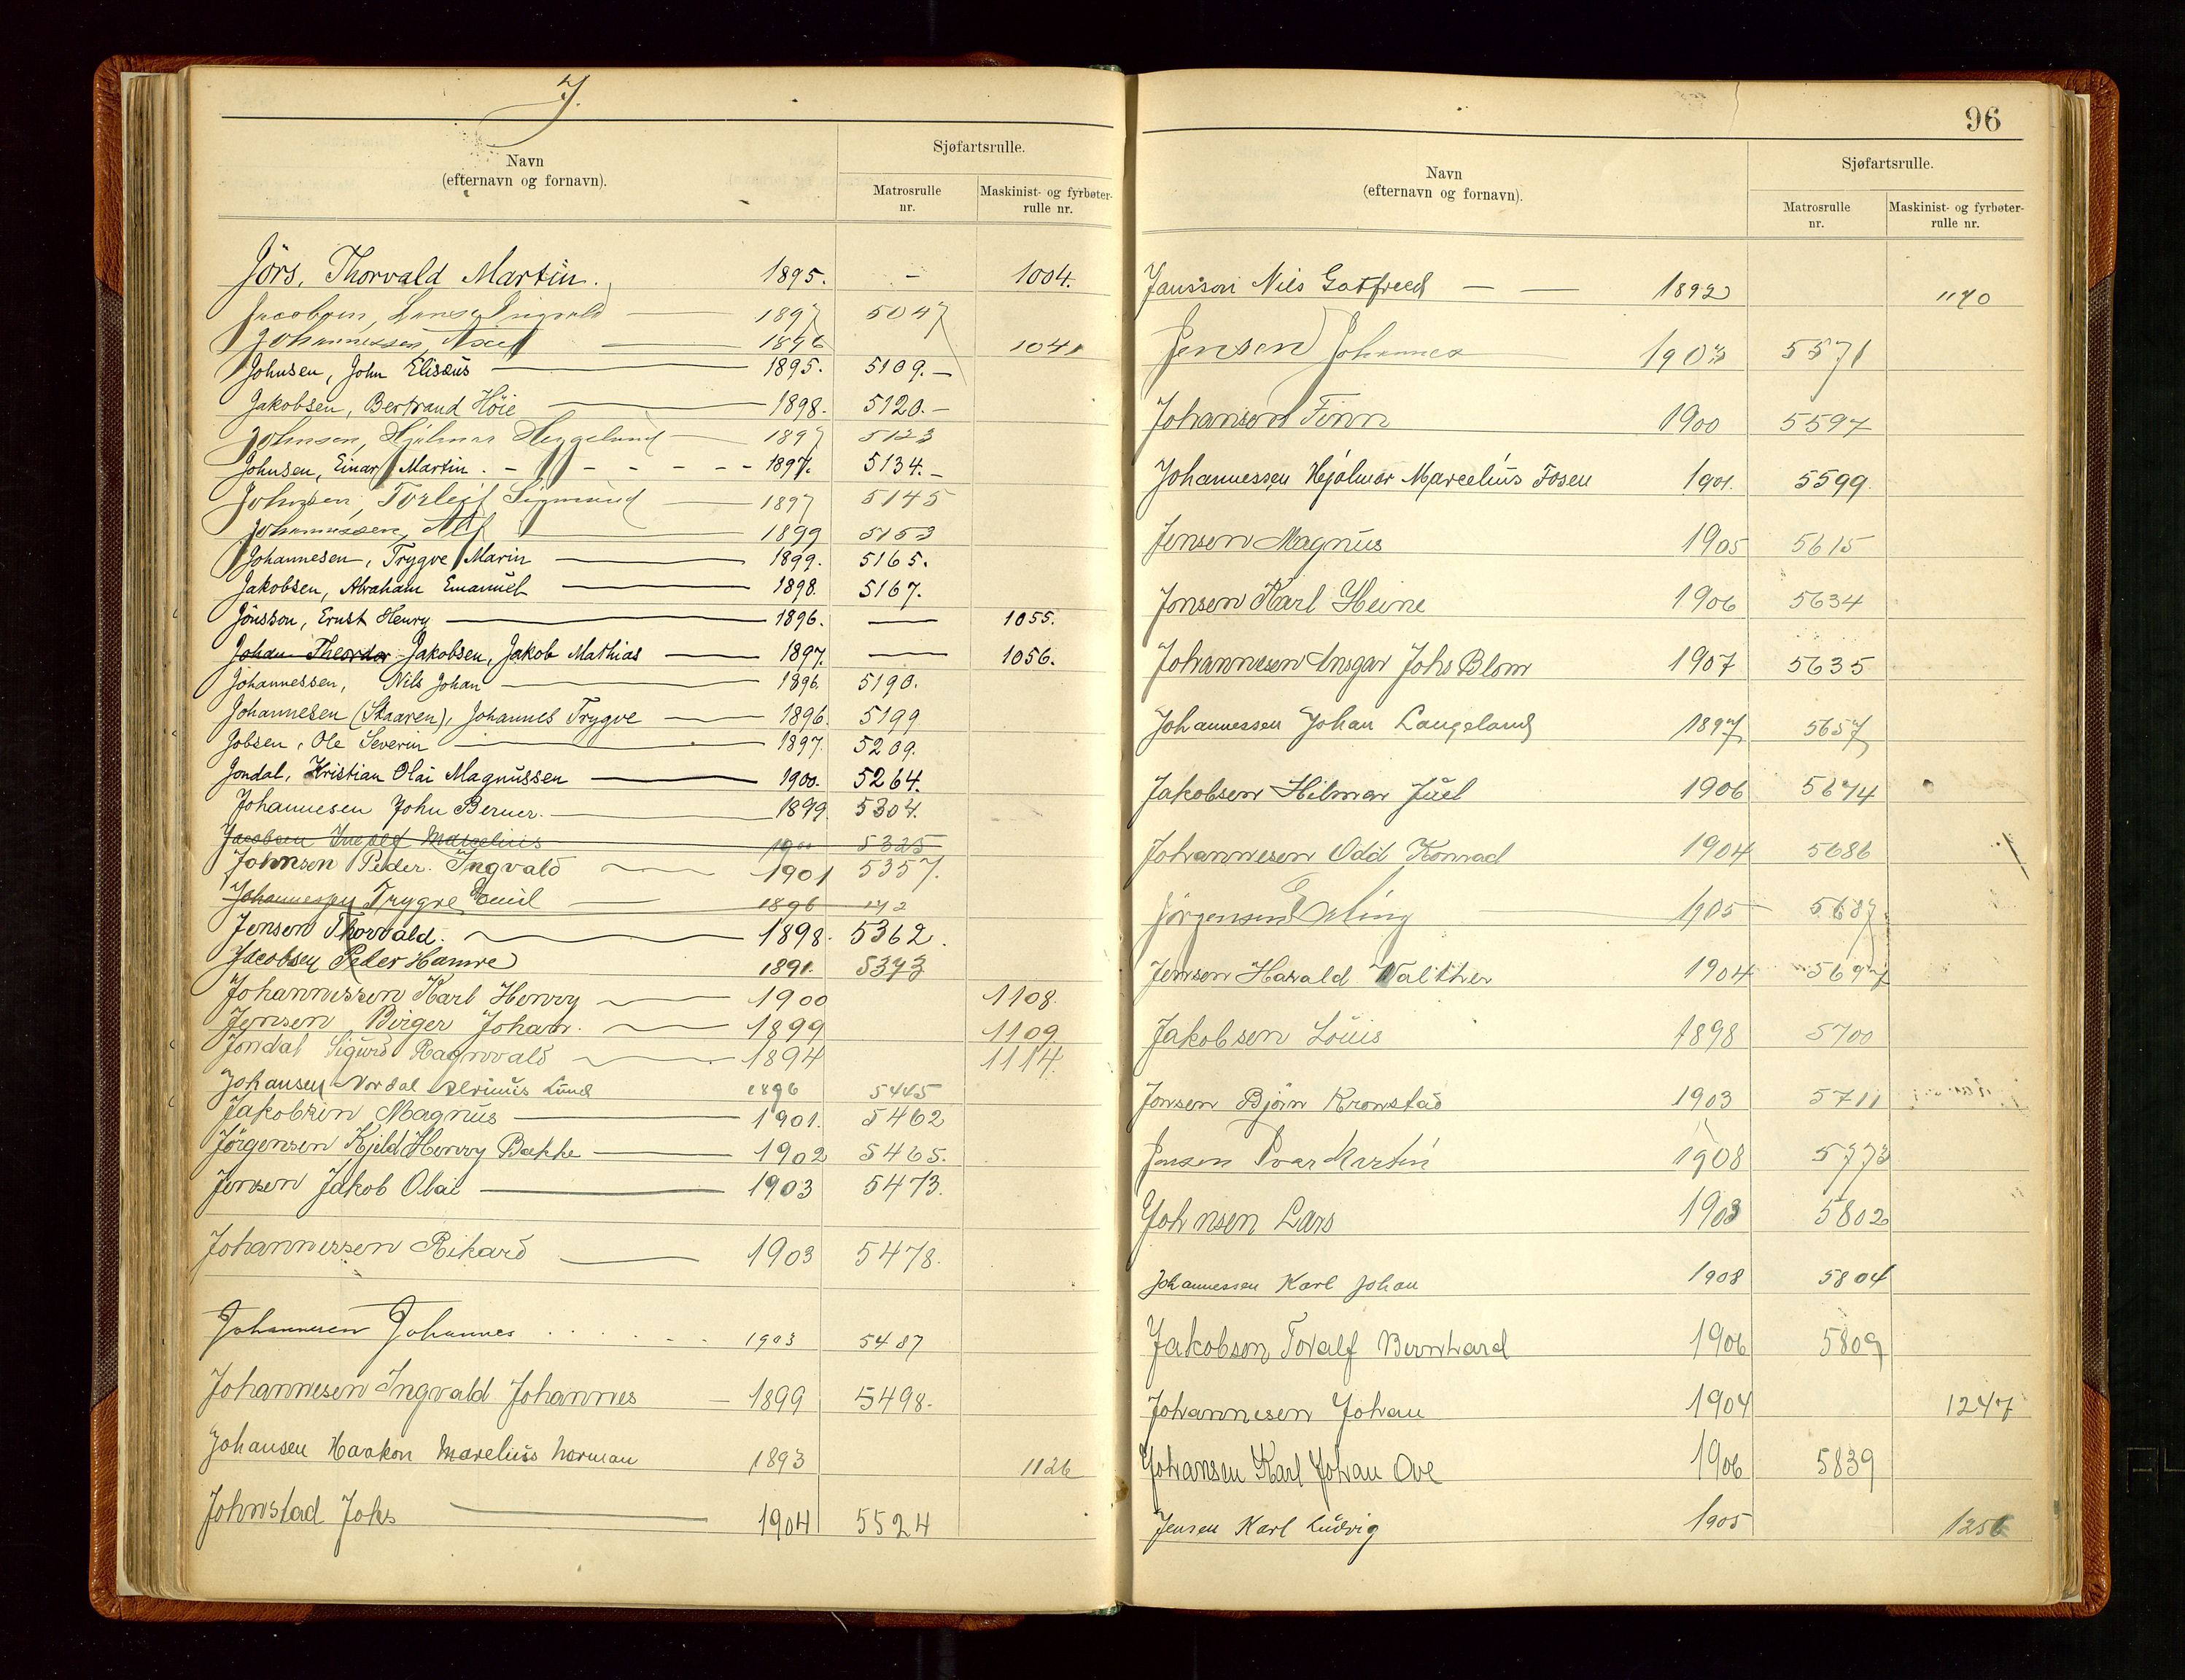 J.
Navn
(efternavn og fornavn).
Sjøfartsrulle.
Matrosrulle
nr.
Maskinist- og fyrbøter-
rulle nr.
Jörs, Thorvald Martin. 1895. - 1004.
Jacobsen, Ingvald 1897 5047
Johannessen, Axel 1896 1041
Johnsen, John Eliseus 1895. 5109.-
Jakobsen, Bertrand Höie 1898. 5120.-
Johnsen, Hjalmar Heggelund 1897 5123
Johnsen, Einar Martin. - - - - - 1897. 5134.-
Johnsen, Torleif Sigmund 1897 5145
Johannessen, Alf 1899 5153
Johannesen, Trygve Marin 1899. 5165.
Jakobsen, Abraham Emanuel 1898. 5167.
Jönsson, Ernst Henry 1896. — 1055.
Johan Theordor Jakobsen, Jakob Mathias 1897. — 1056.
Johannessen, Nils Johan 1896. 5190.
Johannesen (Skaaren), Johannes Trygve 1896. 5199
Jobsen, Ole Severin 1897. 5209.
Jondal, Kristian Olai Magnussen 1900. 5264.
Johannesen John Berner. 1899. 5304.
Jacobsen Ingolf Marselius 1900 5325
Johnsen Peder. Ingvald 1901 5357.
Johannessen Trygve Emil 1896
Jensen Thorvald. 1898. 5362.
Jacobsen Peder Hamre 1891. 5373
Johannessen Karl Henry 1900 1108.
Jensen Birger Johan. 1899 1109
Jondal Sigurd Ragnvald 1894 1114.
Johansen Nordal Lund 1896 5445
Jakobsen Magnus 1901. 5462
Jörgensen Kjeld Henry Bakke 1902 5465.
Jensen Jakob Olai 1903 5473.
Johannessen Rikard 1903 5478.
Johannesen Johannes . . . . . 1903 5487
Johannesen Ingvald Johannes — 1899 5498.
Johansen Haakon Marelius Norman 1893 1126
Johnstad Johs 1904 5524
96
Navn
(efternavn og fornavn).
Sjøfartsrulle.
Matrosrulle
nr.
Maskinist- og fyrbøter-
rulle nr.
Jansson Nils Gotfreed — — 1892 1140
Jensen Johannes 1903 5571
Johanson Finn 1900 5597
Johannessen Hjalmar Marcelius Fosen 1901. 5599.
Jensen Magnus 1905 5615
Jonsen Karl Heine 1906 5634
Johannesen Ansgar Johs Blom 1907 5635
Johannessen Johan Langeland 1897 5657
Jakobsen Hilmar Juel 1906 5674
Johannesen Odd Konrad 1904 5686
Jörgensen Erling 1905 5687
Jensen Harald Walther 1904 5697
Jakobsen Louis 1898 5700
Jonsen Björn Kronstad 1903 5711
Jensen Ivar Martin 1908 5773
Johnsen Lars 1903 5802
Johannessen Karl Johan 1908 5804
Jakobson Toralf Bernhard 1906 5809
Johannesen Johan 1904 1247
Johansen Karl Johan Ove 1906 5839
Jensen Karl Ludvig 1905 1256